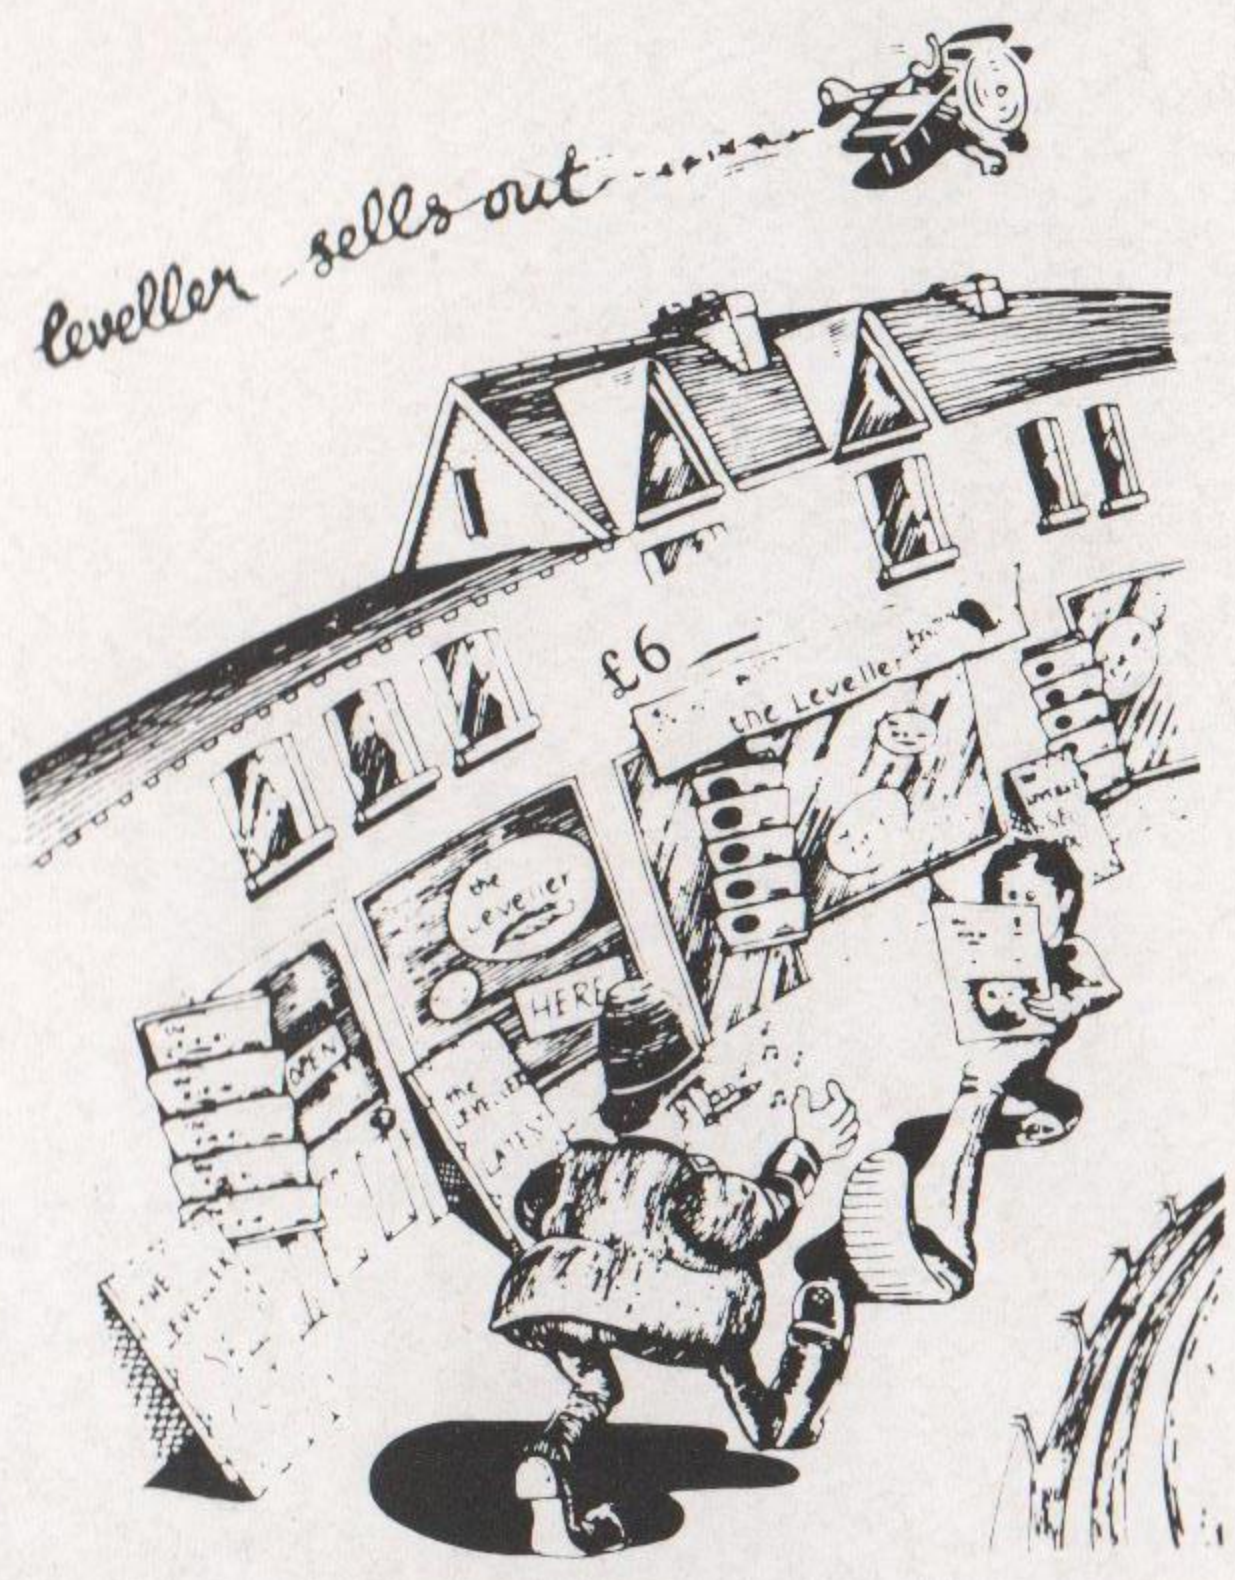 leveller sells out
£6
the Leveller
the
Leveller
HERE
OPEN
the
LEVELLER
LATEST
THE
LEVELLER